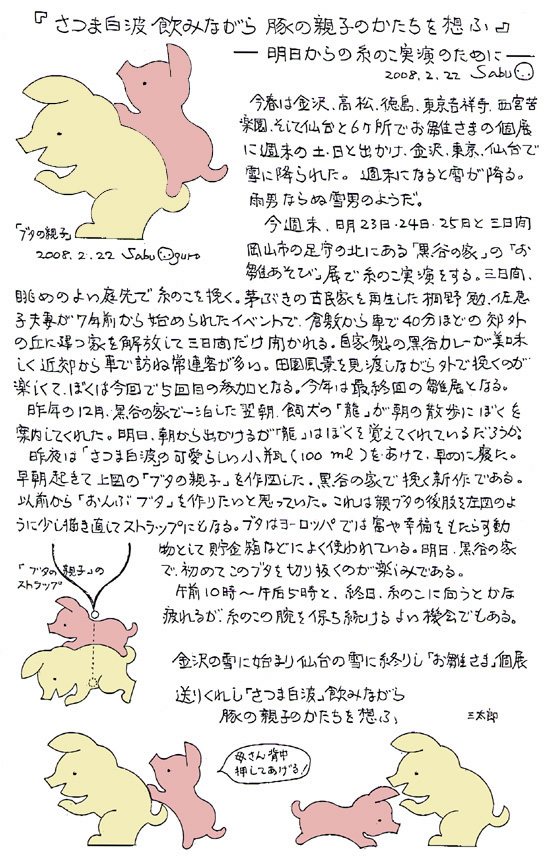 『さつま白波 飲みながら 豚の親子のかたちを想ふ』
― 明日からの糸のこ実演のために ―
2008.2.22 Sabu
今春は金沢、高松、徳島、東京吉祥寺、西宮苦
楽園、そして仙台と6ヶ所でお雛さまの個展
に週末の土・日と出かけ、金沢、東京、仙台で
雪に降られた。週末になると雪が降る。
雨男ならぬ雪男のようだ。
「ブタの親子」
2008.2.22 Sabu Oguro
今週末、明日23日・24日・25日と三日間
岡山市の足守の北にある「黒谷の家」の「お
雛あそび」展で糸のこ実演をする。三日間、
眺めのよい庭先で糸のこを挽く。茅ぶきの古民家を再生した桐野 勉、佐恵
子夫妻が7年前から始められたイベントで、倉敷から車で40分ほどの郊外
の丘に建つ家を解放して三日間だけ開かれる。自家製の黒谷カレーが美味
しく近郊から車で訪ね常連客が多い。田園風景を見渡しながら外で挽くのが
楽しくて、ぼくは今回で5回目の参加となる。今年は最終回の雛展となる。
昨年の12月、黒谷の家で一泊した翌朝、飼犬の「龍」が朝の散歩にぼくを
案内してくれた。明日、朝から出かけるが「龍」はぼくを覚えてくれているだろうか。
昨夜は「さつま白波」の可愛らしい小瓶(100 ml)をあけて、早めに寝た。
早朝起きて上図の「ブタの親子」を作図した。黒谷の家で挽く新作である。
以前から「おんぶブタ」を作りたいと思っていた。これは親ブタの後肢を左図のよ
うに少し描き直してストラップにもなる。ブタはヨーロッパでは富や幸福をもたらす動
物として貯金箱などによく使われている。明日、黒谷の家
で、初めてこのブタを切り抜くのが楽しみである。
「ブタの親子」の
ストラップ
午前10時〜午后5時と、終日、糸のこに向うとかな
疲れるが、糸のこの腕を保ち続けるよい機会でもある。
金沢の雪に始まり仙台の雪に終りし「お雛さま」個展
送りくれし「さつま白波」飲みながら
豚の親子のかたちを想ふ
三太郎
母さん背中
押してあげる!